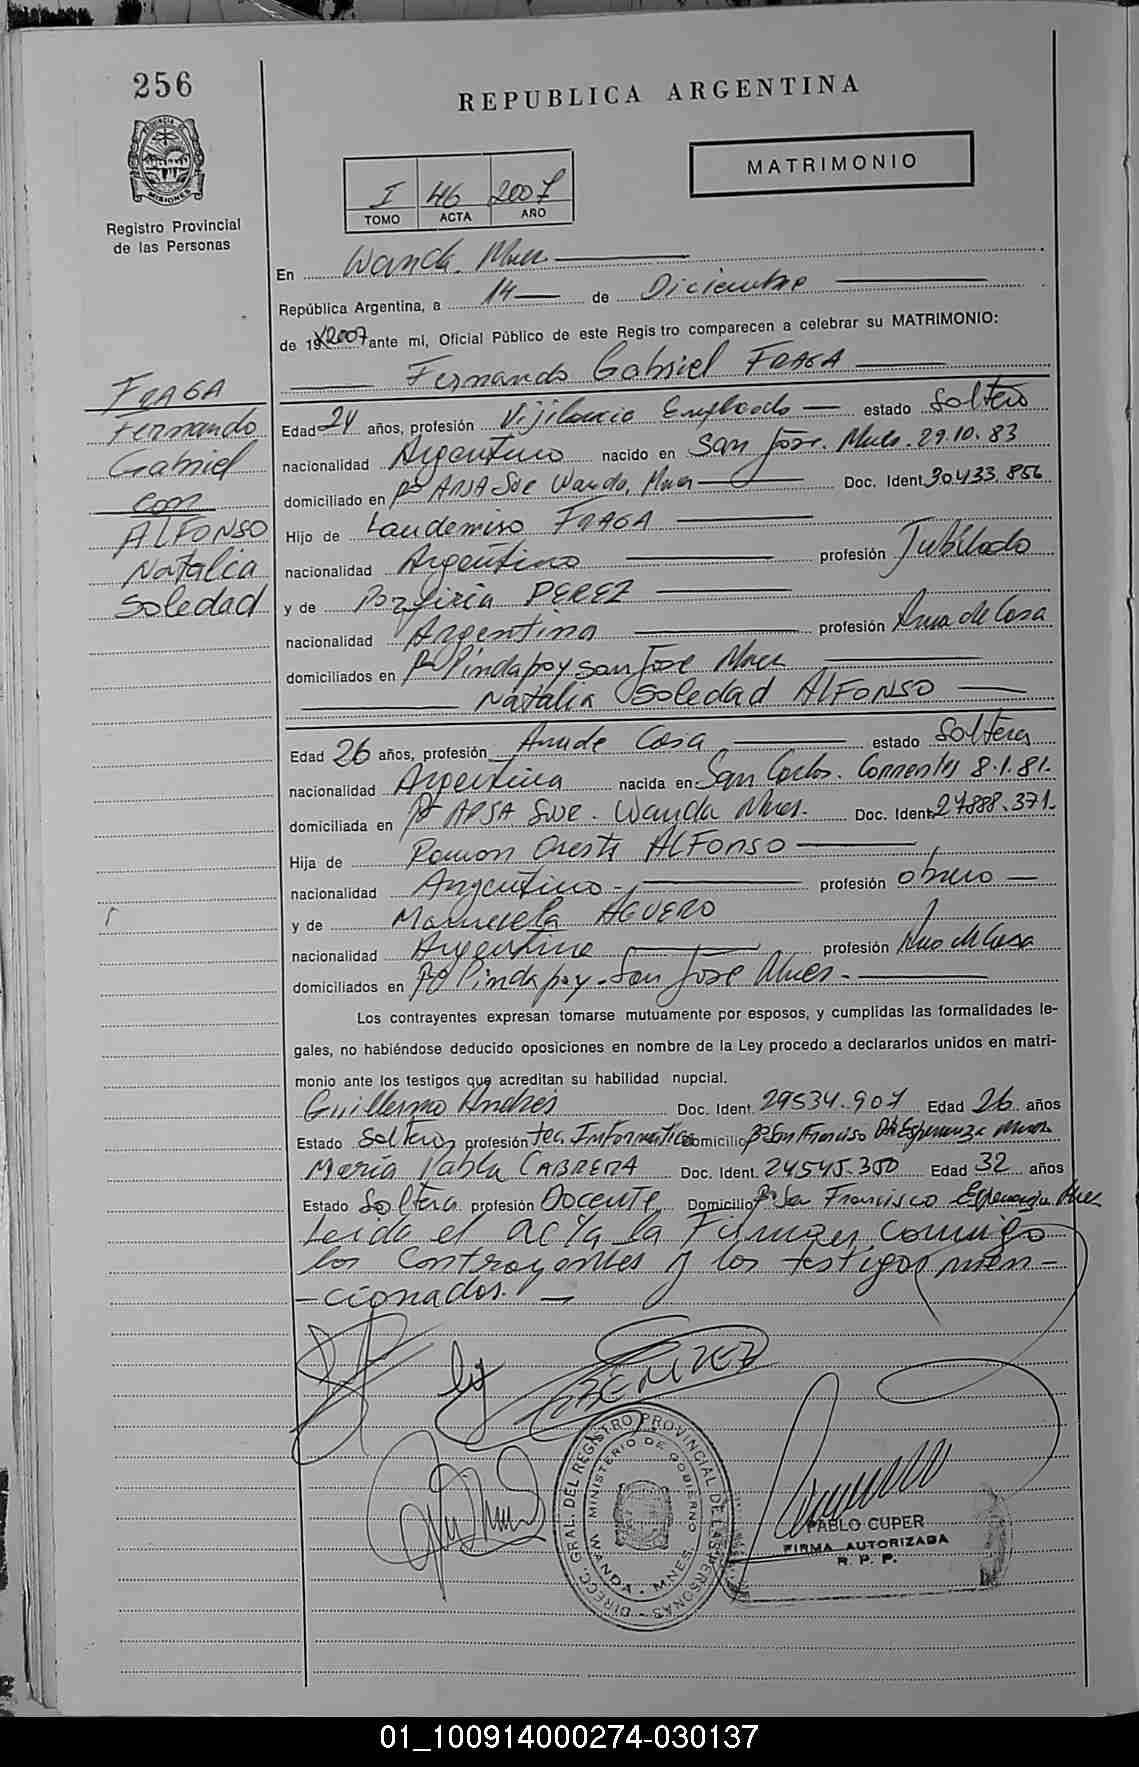 256
REPUBLICA ARGENTINA
PROVINCIA DE
MISIONES
MATRIMONIO
I 46 2007
TOMO ACTA AÑO
Registro Provincial
de las Personas
En Wanda. Mnes
República Argentina, a 14 de Diciembre
de 19 2007 ante mi, Oficial Público de este Regis tro comparecen a celebrar su MATRIMONIO:
Fernando Gabriel FRAGA
FRAGA
Fernando
Gabriel
con
ALFONSO
Natalia
Soledad
Edad 24 años, profesión Vijilancia Empleado estado Soltero
nacionalidad Argentino nacido en San Jose. Mnes. 29.10.83
domiciliado en Bº ARSA Sur Wanda, Mnes Doc. Ident. 30433.856
Hijo de Laudemiro FRAGA
nacionalidad Argentino profesión Jubilado
y de Porfiria PEREZ
nacionalidad Argentina profesión Ama de Casa
domiciliados en Pindapoy San Jose Mnes
Natalia Soledad ALFONSO
Edad 26 años, profesión Ama de Casa estado Soltera
nacionalidad Argentina nacida en San Carlos. Corrientes 8.1.81.
domiciliada en Bº ARSA Sur. Wanda Mnes. Doc. Ident. 27888.371.
Hija de Ramon Oreste ALFONSO
nacionalidad Argentino profesión obrero
y de Manuela AGUERO
nacionalidad Argentina profesión Ama de Casa
domiciliados en Pindapoy - San Jose Mnes.
Los contrayentes expresan tomarse mutuamente por esposos, y cumplidas las formalidades le-
gales, no habiéndose deducido oposiciones en nombre de la Ley procedo a declararlos unidos en matri-
monio ante los testigos que acreditan su habilidad nupcial.
Guillermo Andres Doc. Ident. 29534.907 Edad 26 años
Estado Soltero profesión tec Informatico Domicilio Bº San Francisco Esperanza
Maria Pabla CABRERA Doc. Ident. 24545.300 Edad 32 años
Estado Soltera profesión Docente Domicilio Bº San Francisco Esperanza Mnes
Leida el acta la Firman conmigo
los Contrayentes y los testigos men-
-cionados.
DIRECC. GRAL. DEL REGISTRO PROVINCIAL DE LAS PERSONAS
MINISTERIO DE GOBIERNO
WANDA - MNES.
PABLO CUPER
FIRMA AUTORIZADA
R. P. P.
01_100914000274-030137